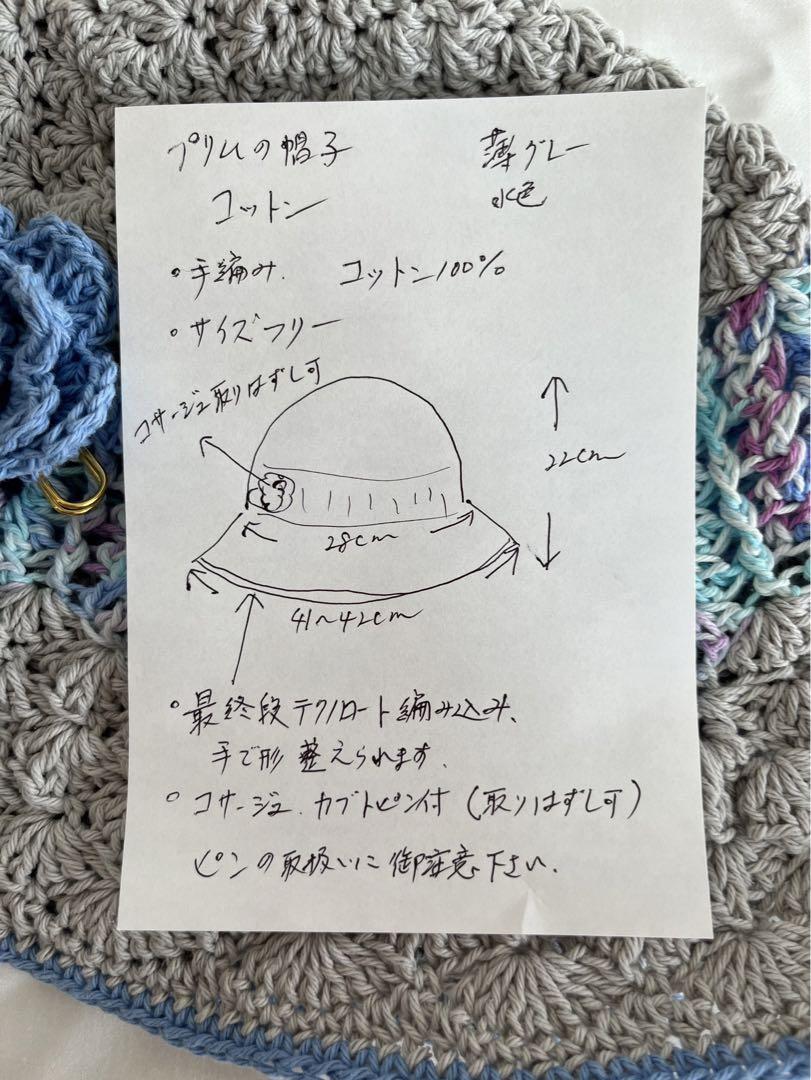 プリムの帽子　薄グレー
コットン　水色
・手編み.　コットン100%
・サイズフリー
コサージュ取りはずし可
22cm
28cm
41〜42cm
・最終段テクノロート編み込み、
手で形整えられます.
・コサージュ、カブトピン付（取りはずし可）
ピンの取扱いに御注意下さい.